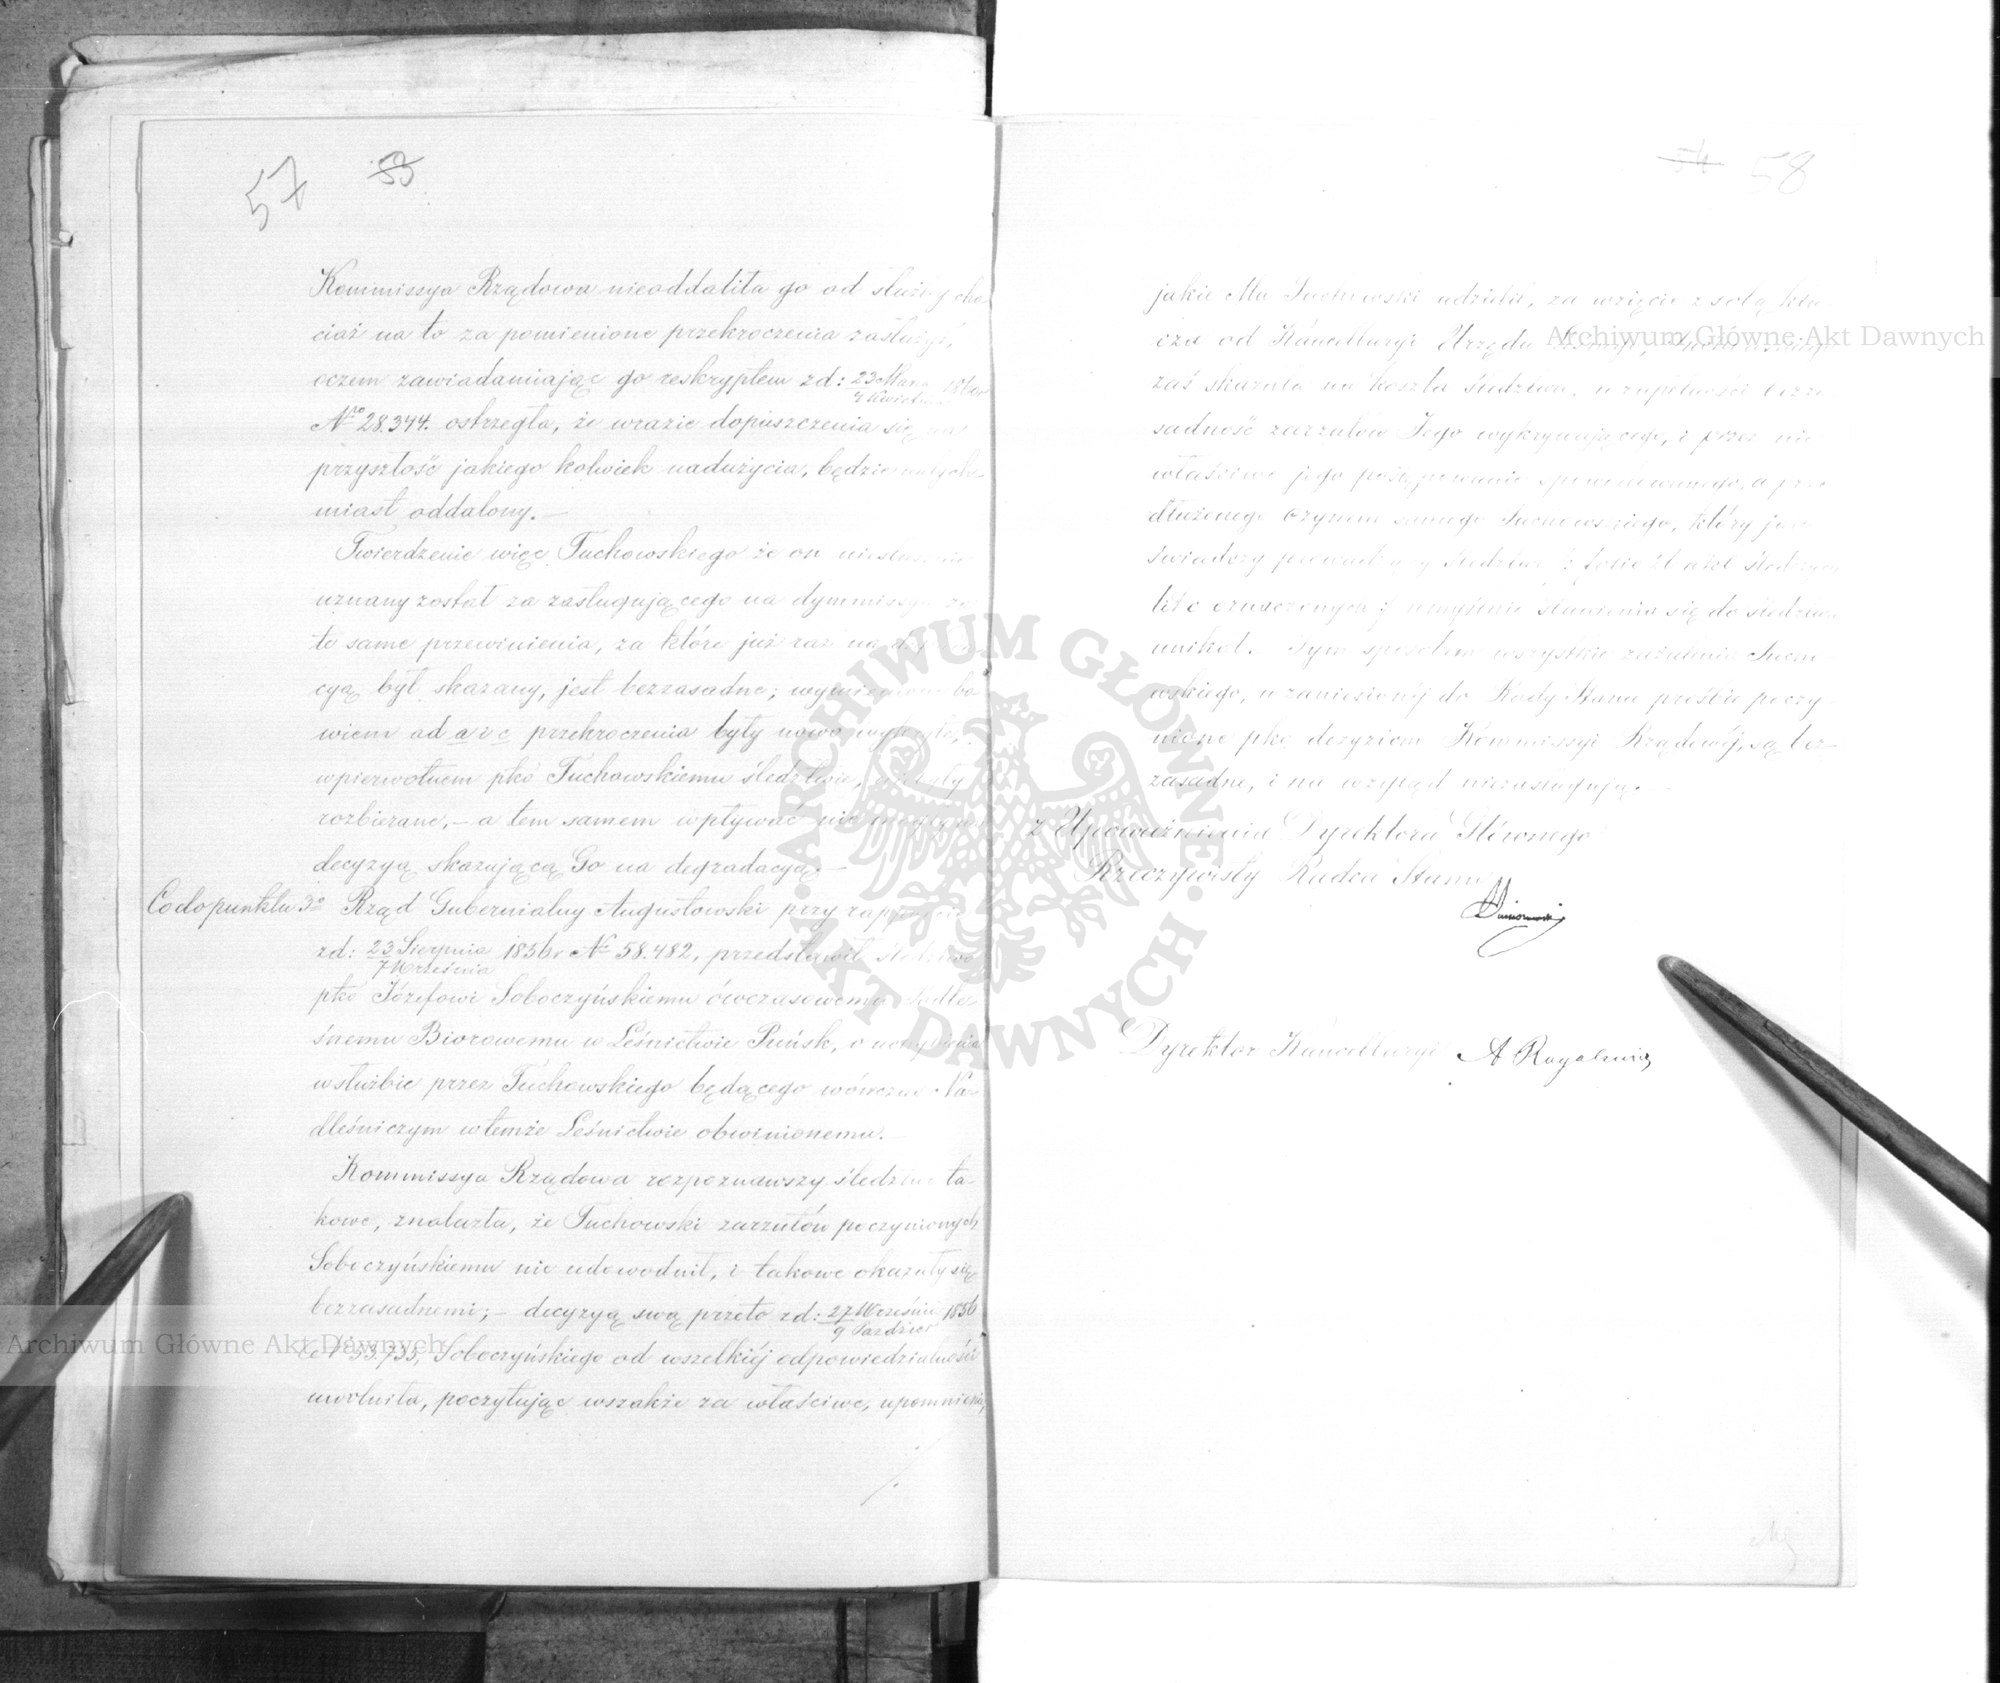 57 53
Kommissya Rządowa nieoddaliła go od służby cho
ciaż na to za pomienione przekroczenia zasłużył,
oczem zawiadamiając go reskryptem zd: 23 Marca 1860r
4 Kwietnia
No 28.344. ostrzegła, że wrazie dopuszczenia się na
przyszłość jakiego kolwiek nadużycia, będzie natych
miast oddalony.—
Twierdzenie więc Tuchowskiego że on niesłusznie
uznany został za zasługującego na dymmissyą za
te same przewinienia, za które już raz na degrada
cyą był skazany, jest bezzasadne; wymienione bo
wiem ad a i c przekroczenia były nowo wykryte,
wpierwotnem pko Tuchowskiemu śledztwie, nie były
rozbierane,— a tem samem wpływać nie mogły na
decyzyą skazującą Go na degradacyą.—
Co do punktu 3o Rząd Gubernialny Augustowski przy rapporcie
zd: 23 Sierpnia 1856r No 58.482, przedstawił śledztwo
7 Września
pko Józefowi Soboczyńskiemu ówczasowemu Podle
śnemu Biorowemu w Leśnictwie Puńsk, o uchybienia
w służbie przez Tuchowskiego będącego wówczas Na
dleśniczym w temże Leśnictwie obwinionemu.—
Kommissya Rządowa rozpoznawszy śledztwo ta-
kowe, znalazła, że Tuchowski zarzutów poczynionych
Soboczyńskiemu nie udowodnił, i takowe okazały się
bezzasadnemi;— decyzyą swą przeto zd: 27 Września 1856
9 Paździer
No 53.735, Soboczyńskiego od wszelkiéj odpowiedzialności
uwolniła, poczytując wszakże za właściwe, upomnienie,
54 58
jakie Mu Tuchowski udzielił, za wzięcie z sobą klu
cza od Kancellaryi Urzędu
zaś skazała na koszta śledztwa, w zupełności bezza
sadność zarzutów Jego wykrywającego, i przez nie
właściwe jego postępowanie spowodowanego, a prze
dłużonego czynem samego Tuchowskiego, który jak
świadczy prowadzący śledztwo /: folio 21 akt śledczych
lit c oznaczonych :/ umyślnie stawienia się do śledztwa
unikał.— Tym sposobem wszystkie zażalenia Tucho
wskiego, w zaniesionéj do Rady Stanu prośbie poczy-
nione pko decyziom Kommissyi Rządowéj, są bez-
zasadne, i na wzgląd niezasługują.—
z Upoważnienia Dyrektora Głównego
Rzeczywisty Radca Stanu
Dyrektor Kancellaryi
Archiwum Główne Akt Dawnych
Archiwum Główne Akt Dawnych
ARCHIWUM GŁÓWNE AKT DAWNYCH